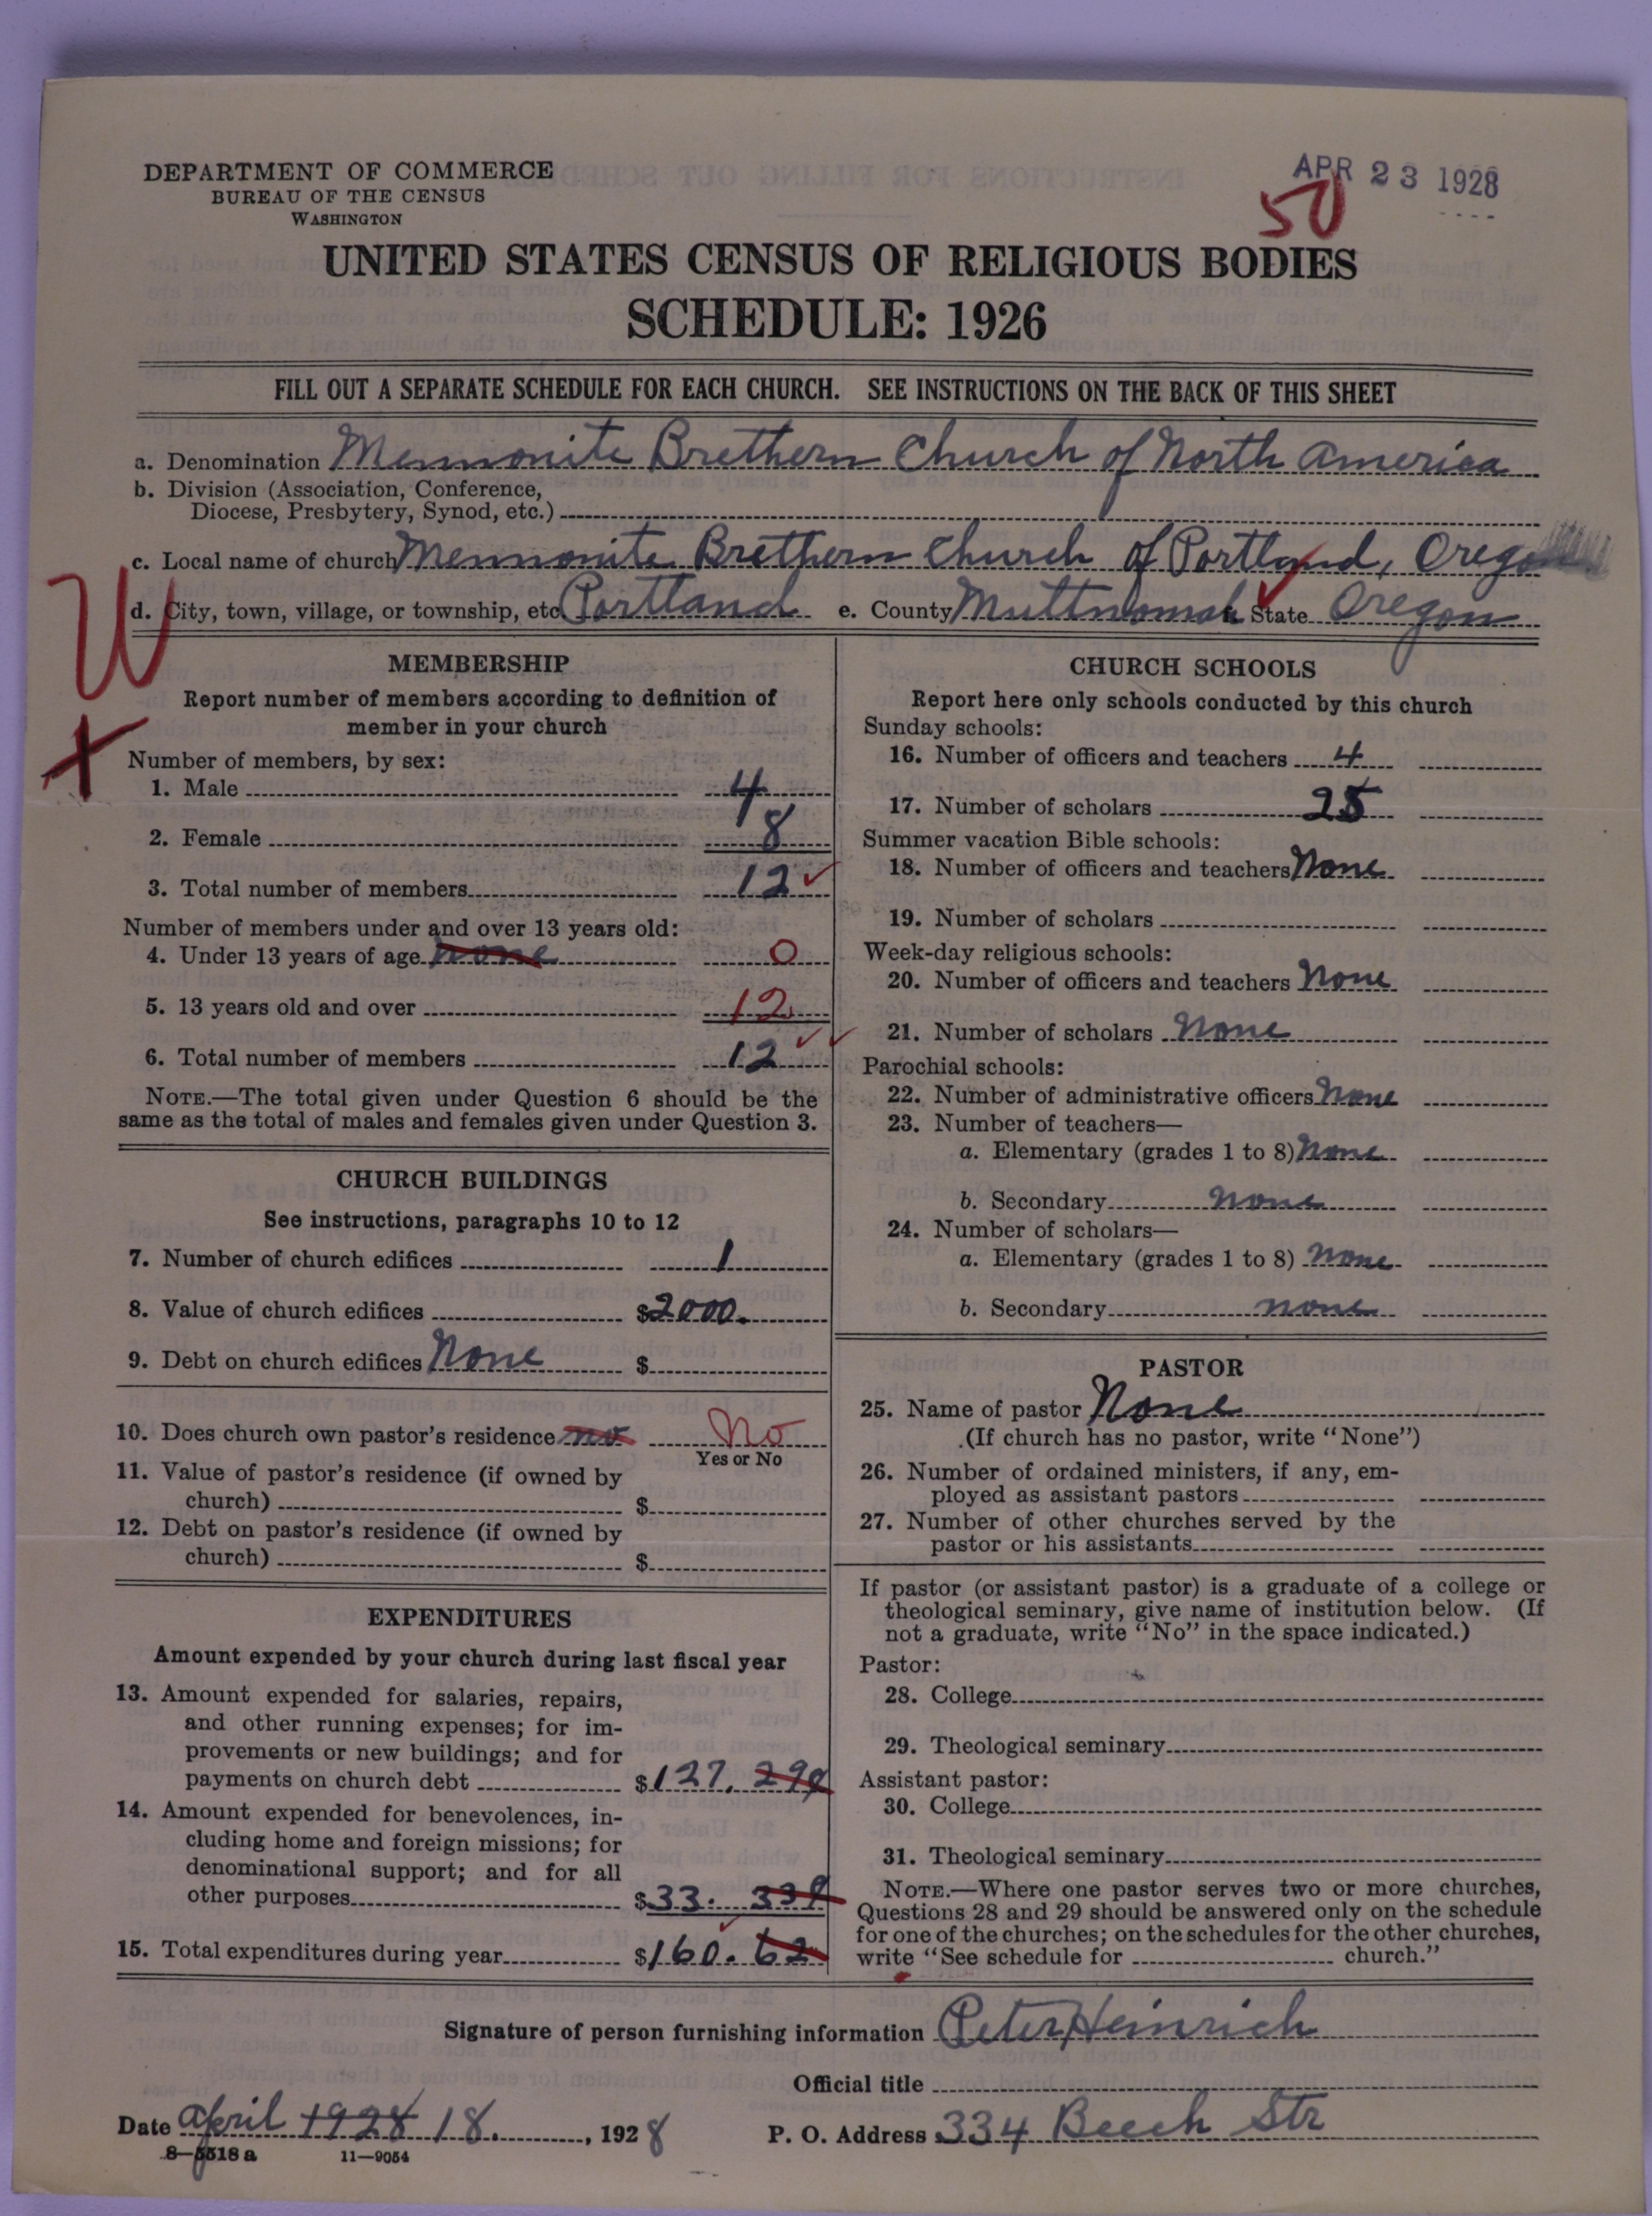 DEPARTMENT OF COMMERCE
BUREAU OF THE CENSUS
WASHINGTON
APR 23 1928
50
UNITED STATES CENSUS OF RELIGIOUS BODIES
SCHEDULE: 1926
FILL OUT A SEPARATE SCHEDULE FOR EACH CHURCH. SEE INSTRUCTIONS ON THE BACK OF THIS SHEET
a. Denomination Mennonite Brethern Church of North America
b. Division (Association, Conference,
Diocese, Presbytery, Synod, etc.)
c. Local name of church Mennonite Brethern Church of Portland, Oregon
d. City, town, village, or township, etc. Portland e. County Multnomah State Oregon
W
X
MEMBERSHIP
Report number of members according to definition of
member in your church
Number of members, by sex:
1. Male 4
2. Female 8
3. Total number of members 12
Number of members under and over 13 years old:
4. Under 13 years of age none 0
5. 13 years old and over 12
6. Total number of members 12
NOTE.—The total given under Question 6 should be the
same as the total of males and females given under Question 3.
CHURCH BUILDINGS
See instructions, paragraphs 10 to 12
7. Number of church edifices 1
8. Value of church edifices $2000.
9. Debt on church edifices None $
10. Does church own pastor's residence no No
Yes or No
11. Value of pastor's residence (if owned by
church) $
12. Debt on pastor's residence (if owned by
church) $
EXPENDITURES
Amount expended by your church during last fiscal year
13. Amount expended for salaries, repairs,
and other running expenses; for im-
provements or new buildings; and for
payments on church debt $127.
14. Amount expended for benevolences, in-
cluding home and foreign missions; for
denominational support; and for all
other purposes $33.
15. Total expenditures during year $160. 62
CHURCH SCHOOLS
Report here only schools conducted by this church
Sunday schools:
16. Number of officers and teachers 4
17. Number of scholars 25
Summer vacation Bible schools:
18. Number of officers and teachers None
19. Number of scholars
Week-day religious schools:
20. Number of officers and teachers None
21. Number of scholars None
Parochial schools:
22. Number of administrative officers None
23. Number of teachers—
a. Elementary (grades 1 to 8) None
b. Secondary None
24. Number of scholars—
a. Elementary (grades 1 to 8) None
b. Secondary none
PASTOR
25. Name of pastor None
(If church has no pastor, write "None")
26. Number of ordained ministers, if any, em-
ployed as assistant pastors
27. Number of other churches served by the
pastor or his assistants
If pastor (or assistant pastor) is a graduate of a college or
theological seminary, give name of institution below. (If
not a graduate, write "No" in the space indicated.)
Pastor:
28. College
29. Theological seminary
Assistant pastor:
30. College
31. Theological seminary
NOTE.—Where one pastor serves two or more churches,
Questions 28 and 29 should be answered only on the schedule
for one of the churches; on the schedules for the other churches,
write "See schedule for church."
Signature of person furnishing information Peter Heinrich
Official title
Date April 1928 18., 1928 P. O. Address 334 Beech Str
8—5518 a 11—9054